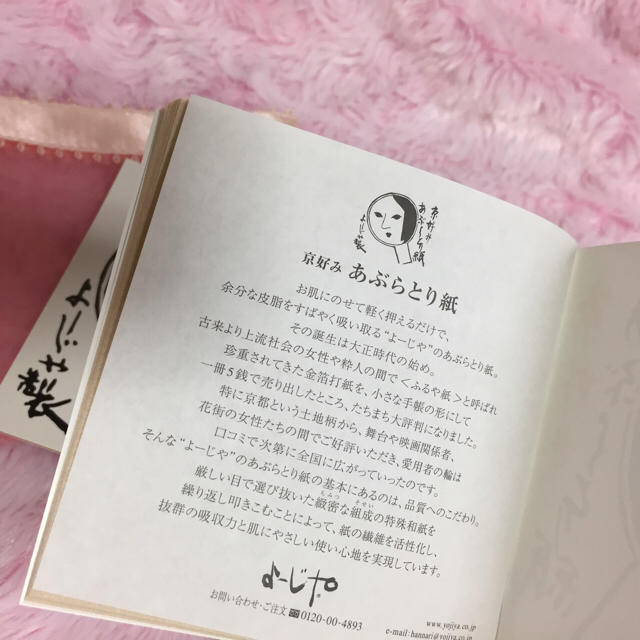 京好み
あぶらとり紙
よーじや製
京好み あぶらとり紙
お肌にのせて軽く押えるだけで、
余分な皮脂をすばやく吸い取る“よーじや”のあぶらとり紙。
その誕生は大正時代の始め。
古来より上流社会の女性や粋人の間で＜ふるや紙＞と呼ばれ
珍重されてきた金箔打紙を、小さな手帳の形にして
一冊5銭で売り出したところ、たちまち大評判になりました。
特に京都という土地柄から、舞台や映画関係者、
花街の女性たちの間でご好評いただき、愛用者の輪は
口コミで次第に全国に広がっていったのです。
そんな“よーじや”のあぶらとり紙の基本にあるのは、品質へのこだわり。
厳しい目で選び抜いた緻密な組成の特殊和紙を
繰り返し叩きこむことによって、紙の繊維を活性化し、
抜群の吸収力と肌にやさしい使い心地を実現しています。
よーじや
お問い合わせ・ご注文 0120-00-4893
www.yojiya.co.jp
e-mail: hannari@yojiya.co.jp
よーじや